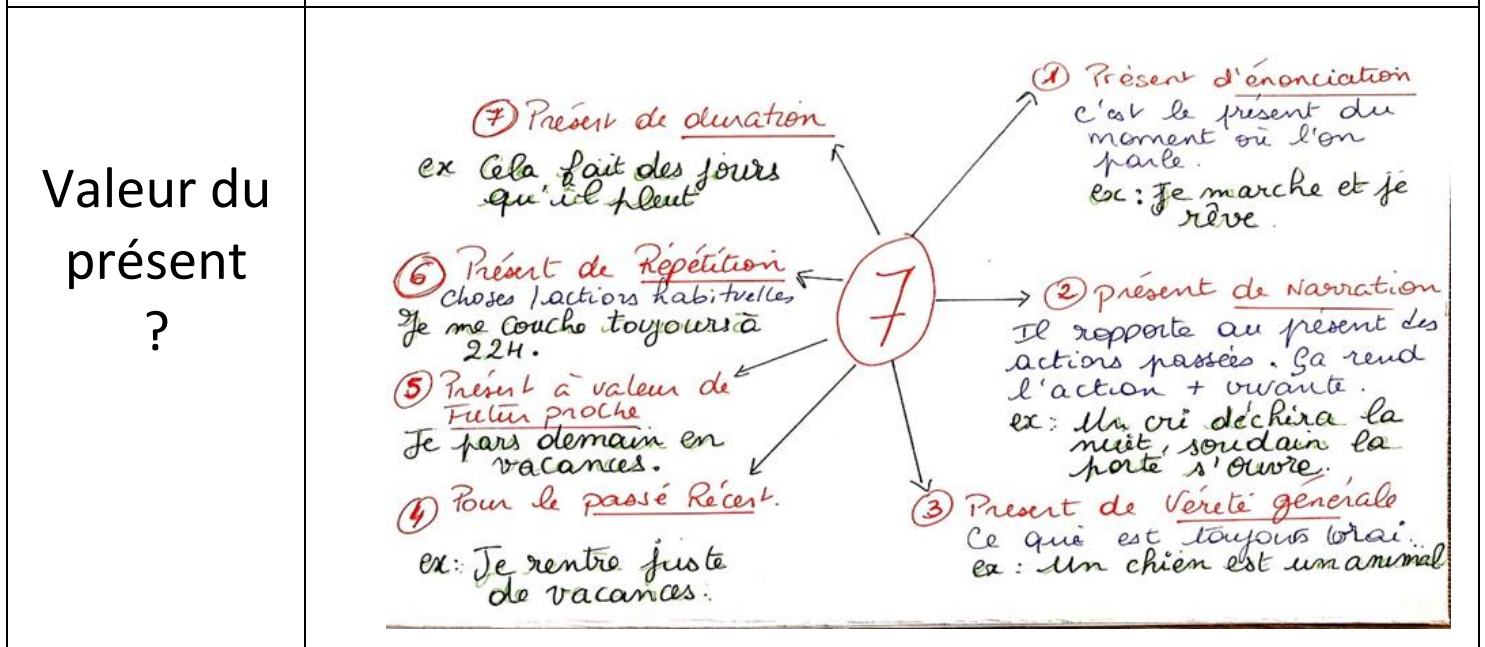 Valeur du
présent
?
7
① Présent d'énonciation
c'est le présent du
moment où l'on
parle.
ex : Je marche et je
rêve.
② présent de Narration
Il rapporte au présent des
actions passées. Ça rend
l'action + vivante.
ex : Un cri déchira la
nuit, soudain la
porte s'ouvre.
③ Present de Vérété générale
Ce qui est toujours vrai.
ex : Un chien est un animal
④ Pour le passé Récent.
ex : Je rentre juste
de vacances.
⑤ Présent à valeur de
Futur proche
Je pars demain en
vacances.
⑥ Présent de Répétition
choses / actions habituelles
Je me couche toujours à
22H.
⑦ Présent de duration
ex Cela fait des jours
qu'il pleut